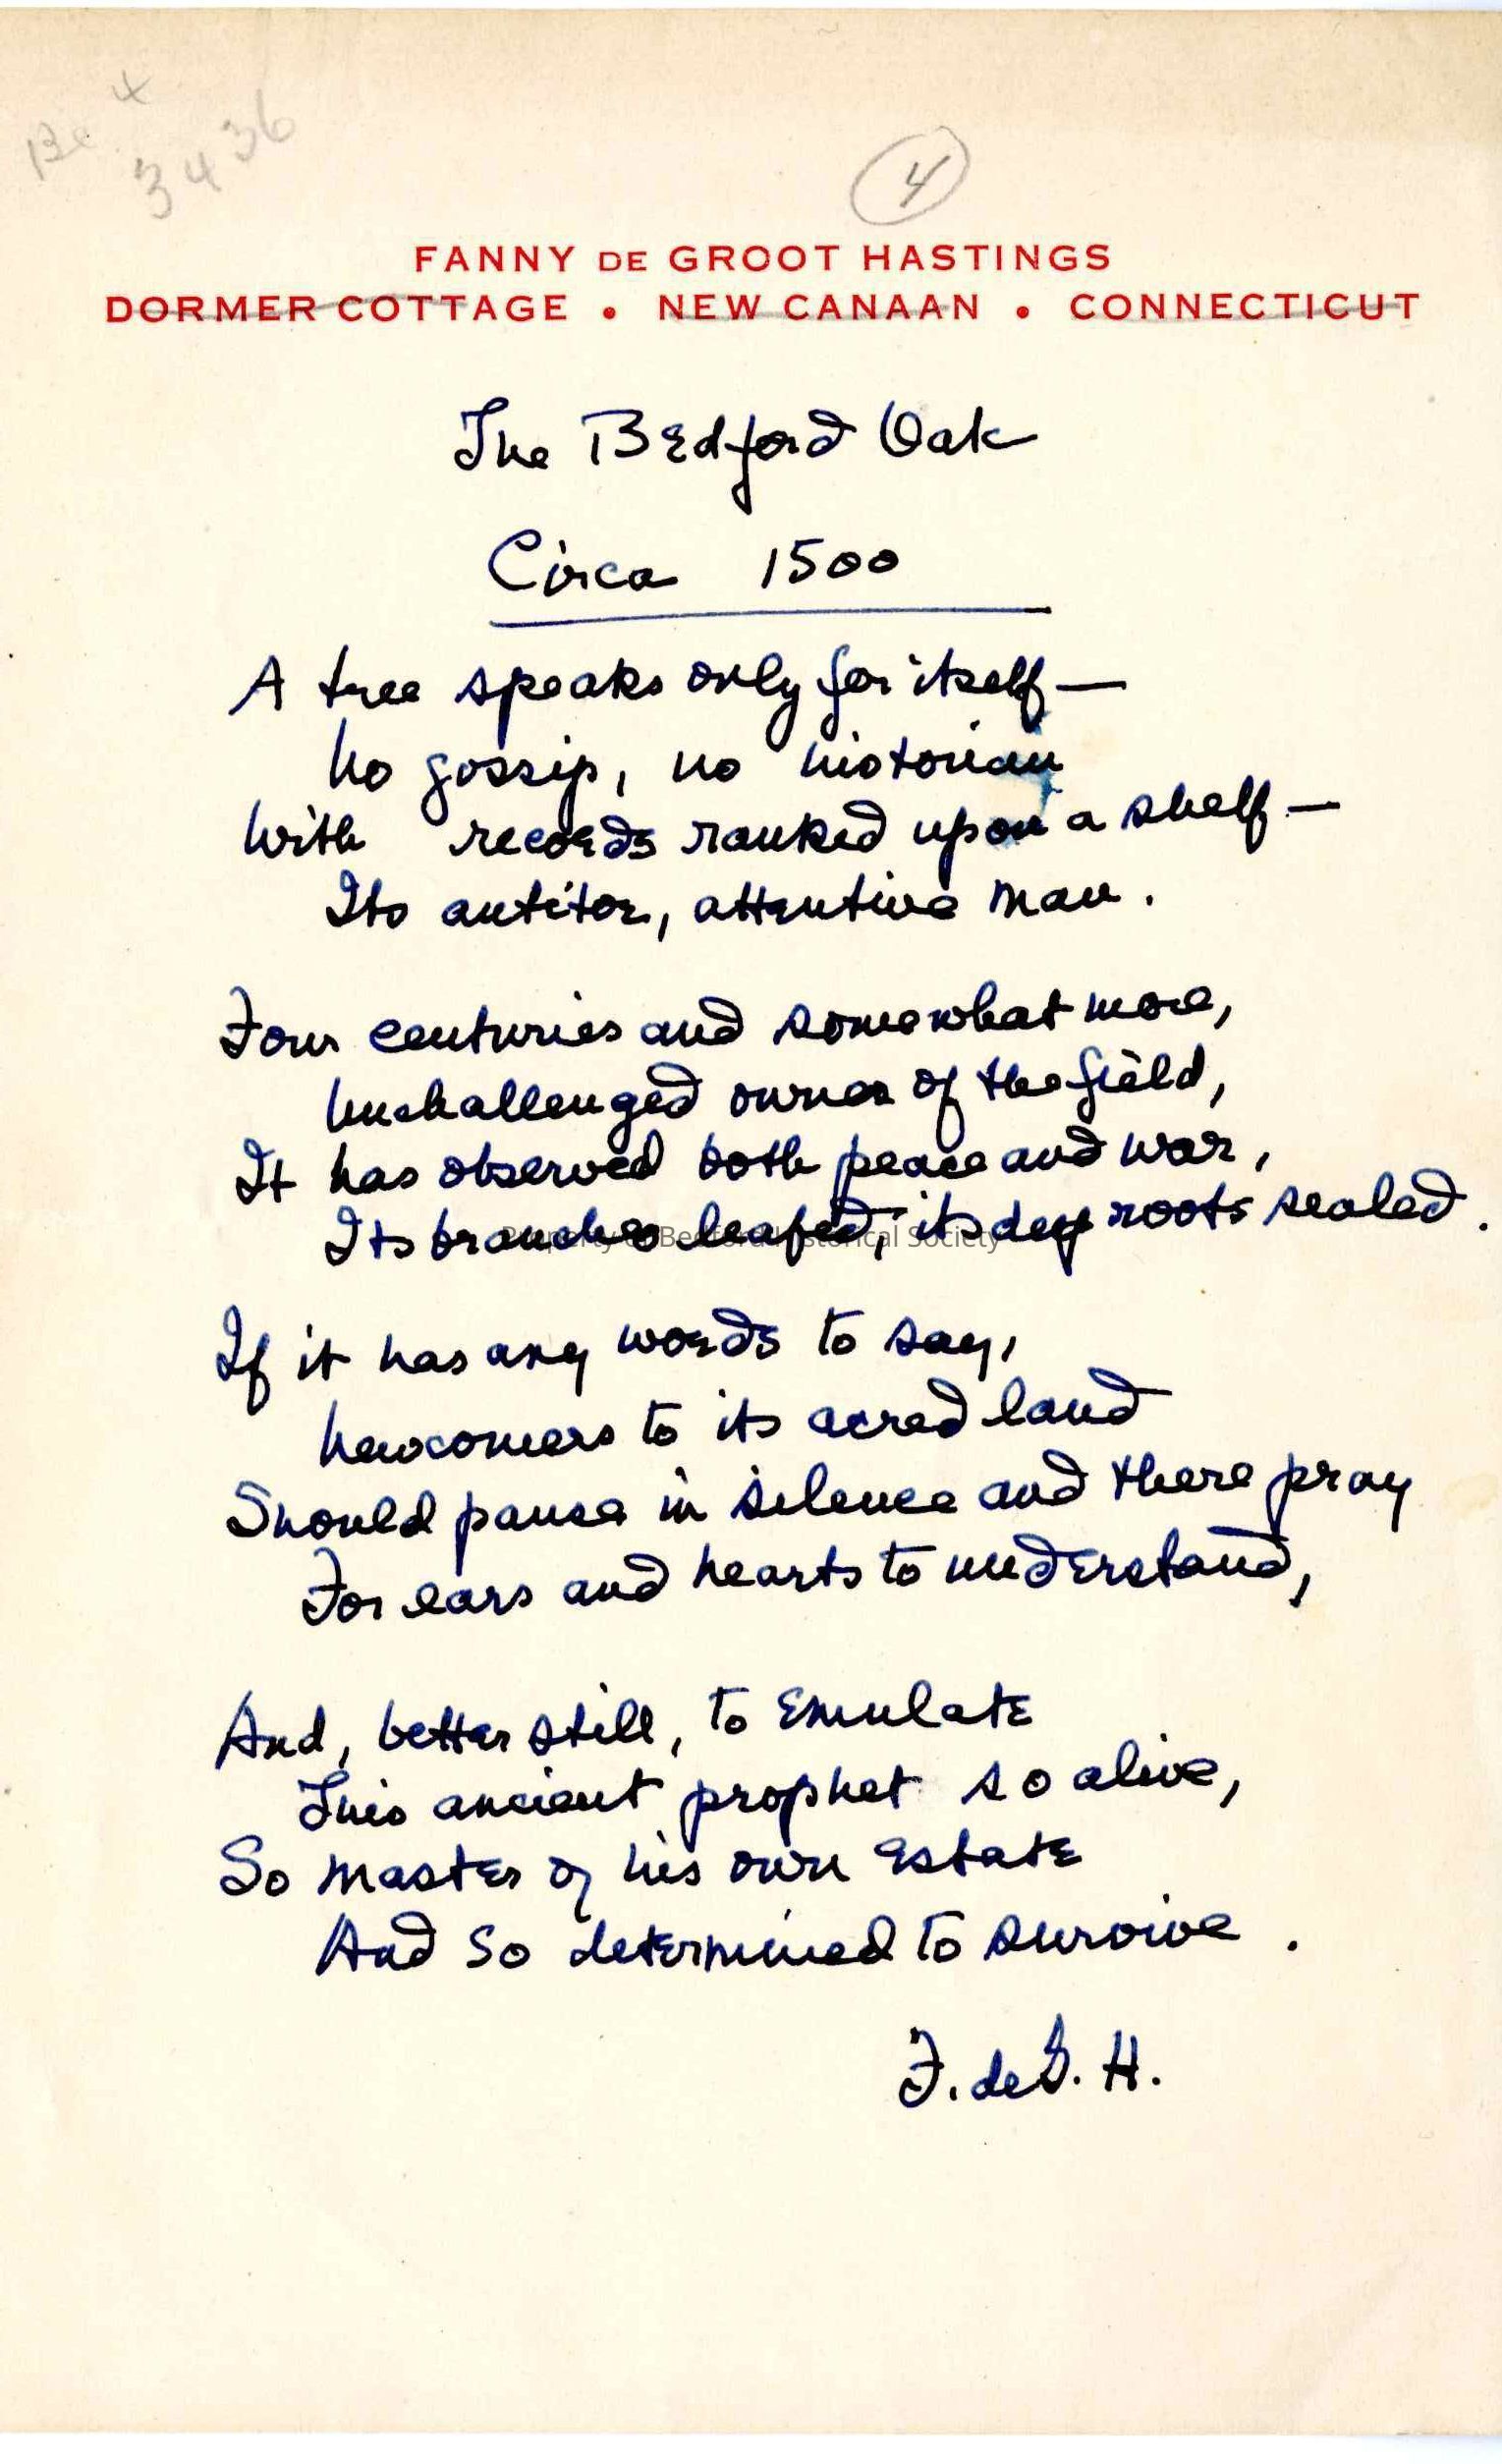 4
3436
4
FANNY DE GROOT HASTINGS
DORMER COTTAGE • NEW CANAAN • CONNECTICUT
The Bedford Oak
Circa 1500
A tree speaks only for itself —
No gossip, no historian
With records ranked upon a shelf —
Its auditor, attentive man.
Four centuries and somewhat more,
Unchallenged owner of the field,
It has observed both peace and war,
Its branches leafed, its deep roots sealed.
Property of Bedford Historical Society
If it has any words to say,
Newcomers to its acred land
Should pause in silence and there pray
For ears and hearts to understand,
And, better still, to emulate
This ancient prophet so alive,
So master of his own estate
And so determined to survive.
F. de G. H.